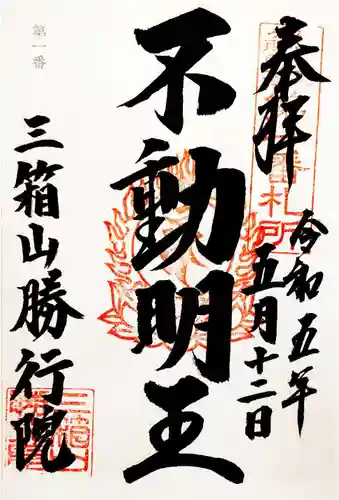 奉拝
令和五年
五月十二日
不動明王
第一番
三箱山勝行院